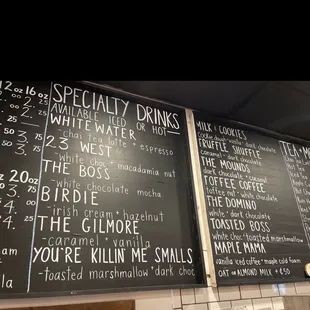 12oz 16oz
2.25
2.75
.75
.50
3.
.75
20oz
SPECIALTY DRINKS
AVAILABLE ICED OR HOT—
WHITEWATER
-chai tea latte * espresso
23 WEST
-white choc * macadamia nut
THE BOSS
-white chocolate mocha
BIRDIE
-irish cream * hazelnut
THE GILMORE
-caramel * vanilla
YOU'RE KILLIN' ME SMALLS
-toasted marshmallow * dark choc
MILK & COOKIES
TRUFFLE SHUFFLE
-caramel * dark chocolate
THE MOUNDS
-coconut * dark chocolate
TOFFEE COFFEE
-toffee nut * white chocolate
THE DOMINO
-white * dark chocolate
TOASTED BOSS
-white choc * toasted marshmallow
MAPLE MAMA
-vanilla iced coffee * maple cold foam
OAT or ALMOND MILK + .50
TEA + M